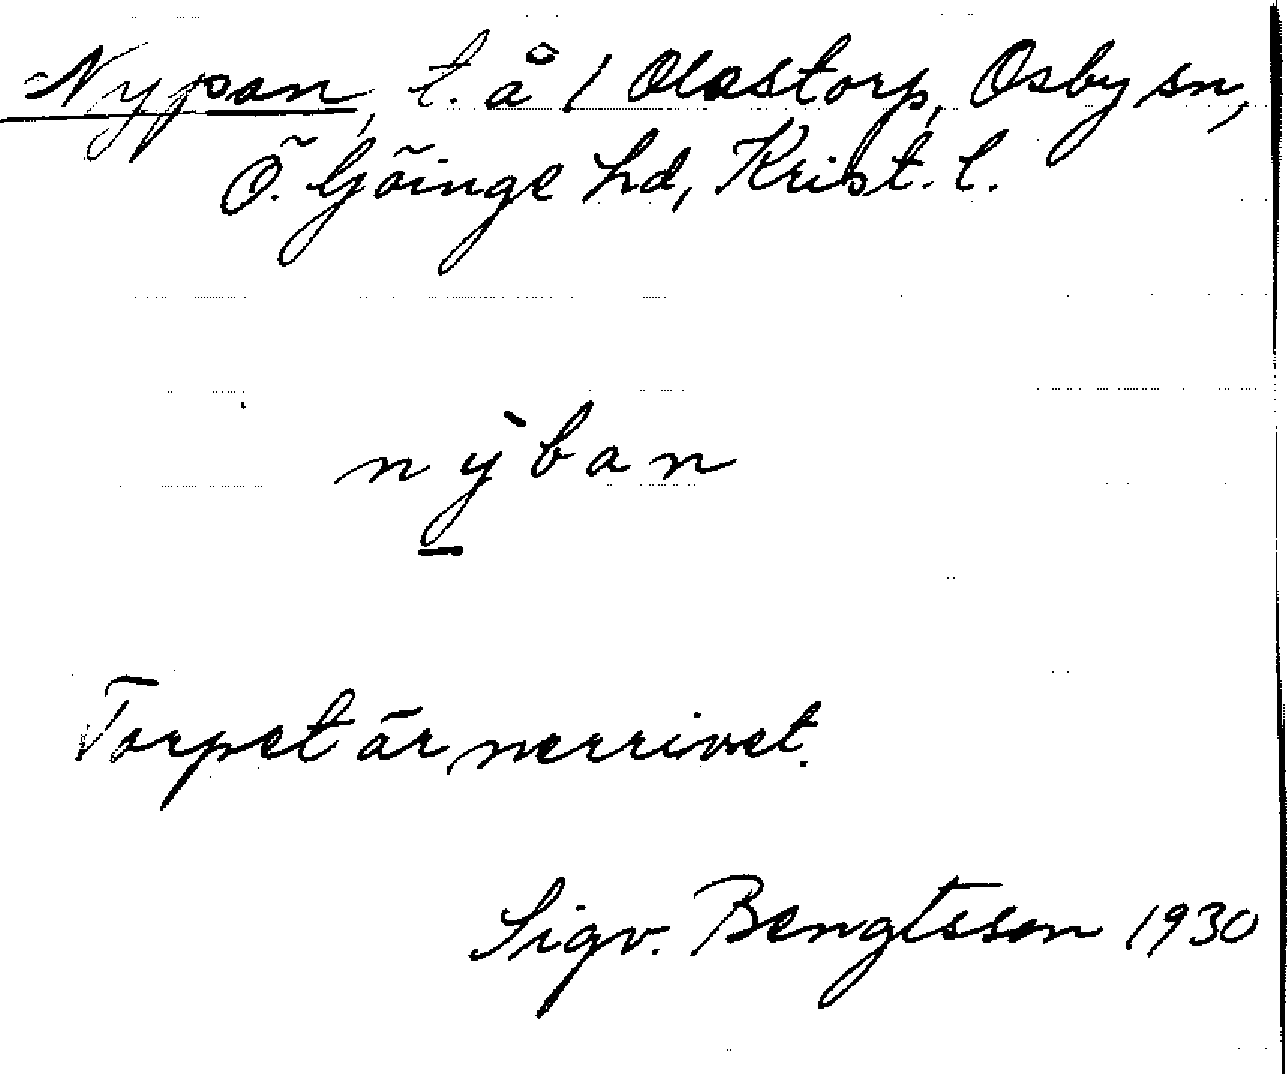 Nypan, t. å 1 Olastorp, Osby sn,
Ö. Göinge hd, Krist. l.
nỳban
Torpet är nerrivet.
Sigv. Bengtsson 1930